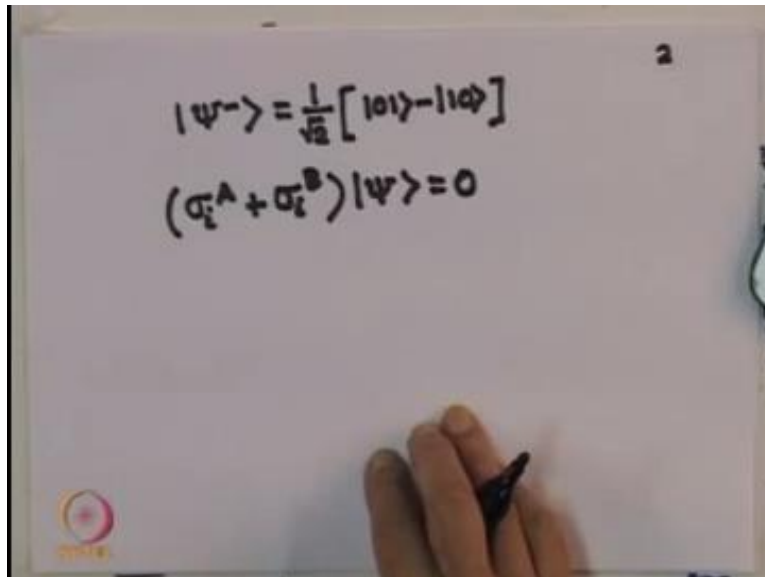 2
|ψ⁻> = 1/√2 [ |01> - |10> ]
(σᵢᴬ + σᵢᴮ) |ψ> = 0